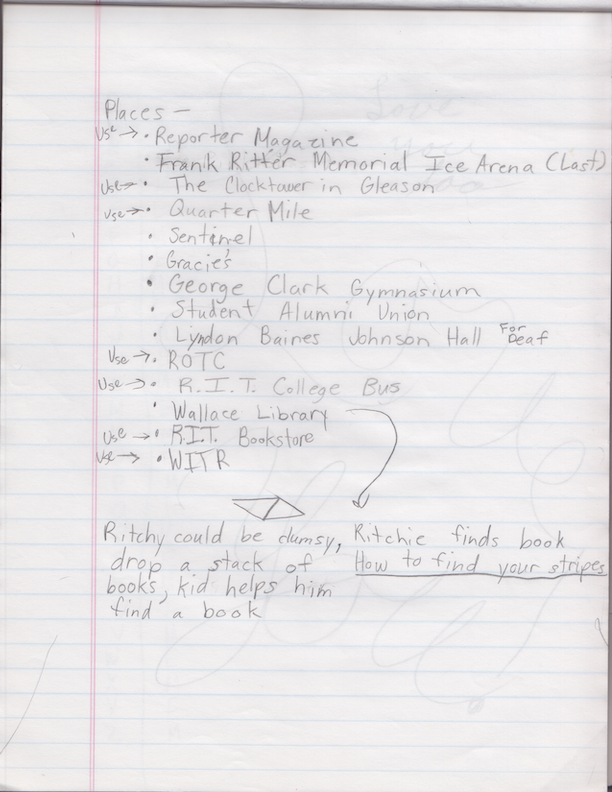 Places -
Use → • Reporter Magazine
• Frank Ritter Memorial Ice Arena (Last)
Use → • The Clocktower in Gleason
Use → • Quarter Mile
• Sentinel
• Gracie's
• George Clark Gymnasium
• Student Alumni Union
• Lyndon Baines Johnson Hall For Deaf
Use → • ROTC
Use → • R.I.T. College Bus
• Wallace Library
Use → • R.I.T. Bookstore
Use → • WITR
Ritchy could be clumsy,
drop a stack of
books, kid helps him
find a book
Ritchie finds book
How to find your stripes
Love
you